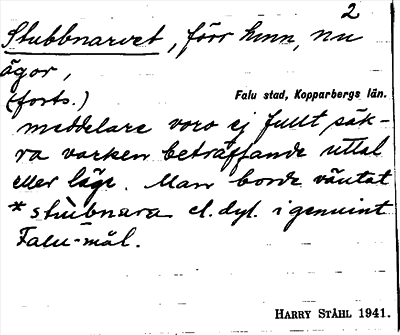 2
Stubbnarvet, förr hmn, nu
ägor,
(forts.)
Falu stad, Kopparbergs län.
meddelare voro ej fullt säk-
ra varken beträffande uttal
eller läge. Man borde väntat
* stubnara el. dyl. i genuint
Falu-mål.
HARRY STÅHL 1941.